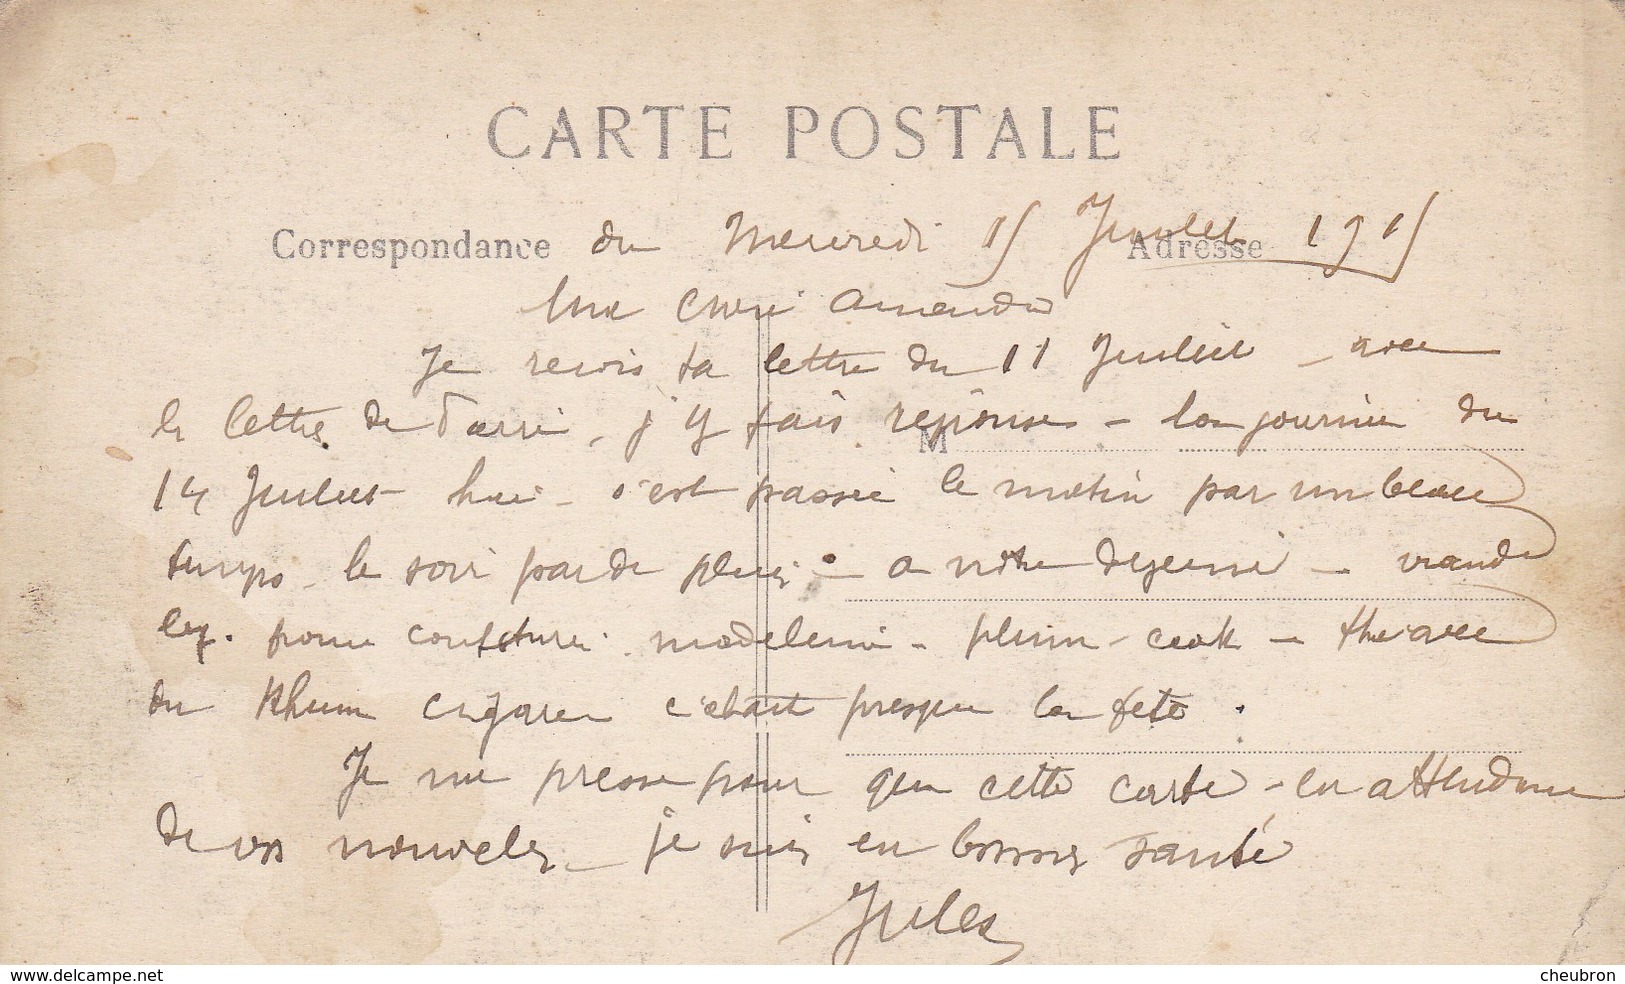 CARTE POSTALE
Correspondance du Mercredi 15 Juillet Adresse 1915
Ma Cheri Amanda
Je recois ta lettre du 11 Juillet - avec
la lettre de , j'y fais reponse - la journée du
M
14 Juillet hier - s'est passée le matin par un beau
temps - le soir par de pluie - a notre dejeuné - viande
leg. confiture. madeleine - plum-cak - thé avec
du Rhum cigare c'etait presque la fete.
Je me presse pour que cette carte - en attendant
de vos nouveles - je suis en bonne santé
Jules
www.delcampe.net
cheubron